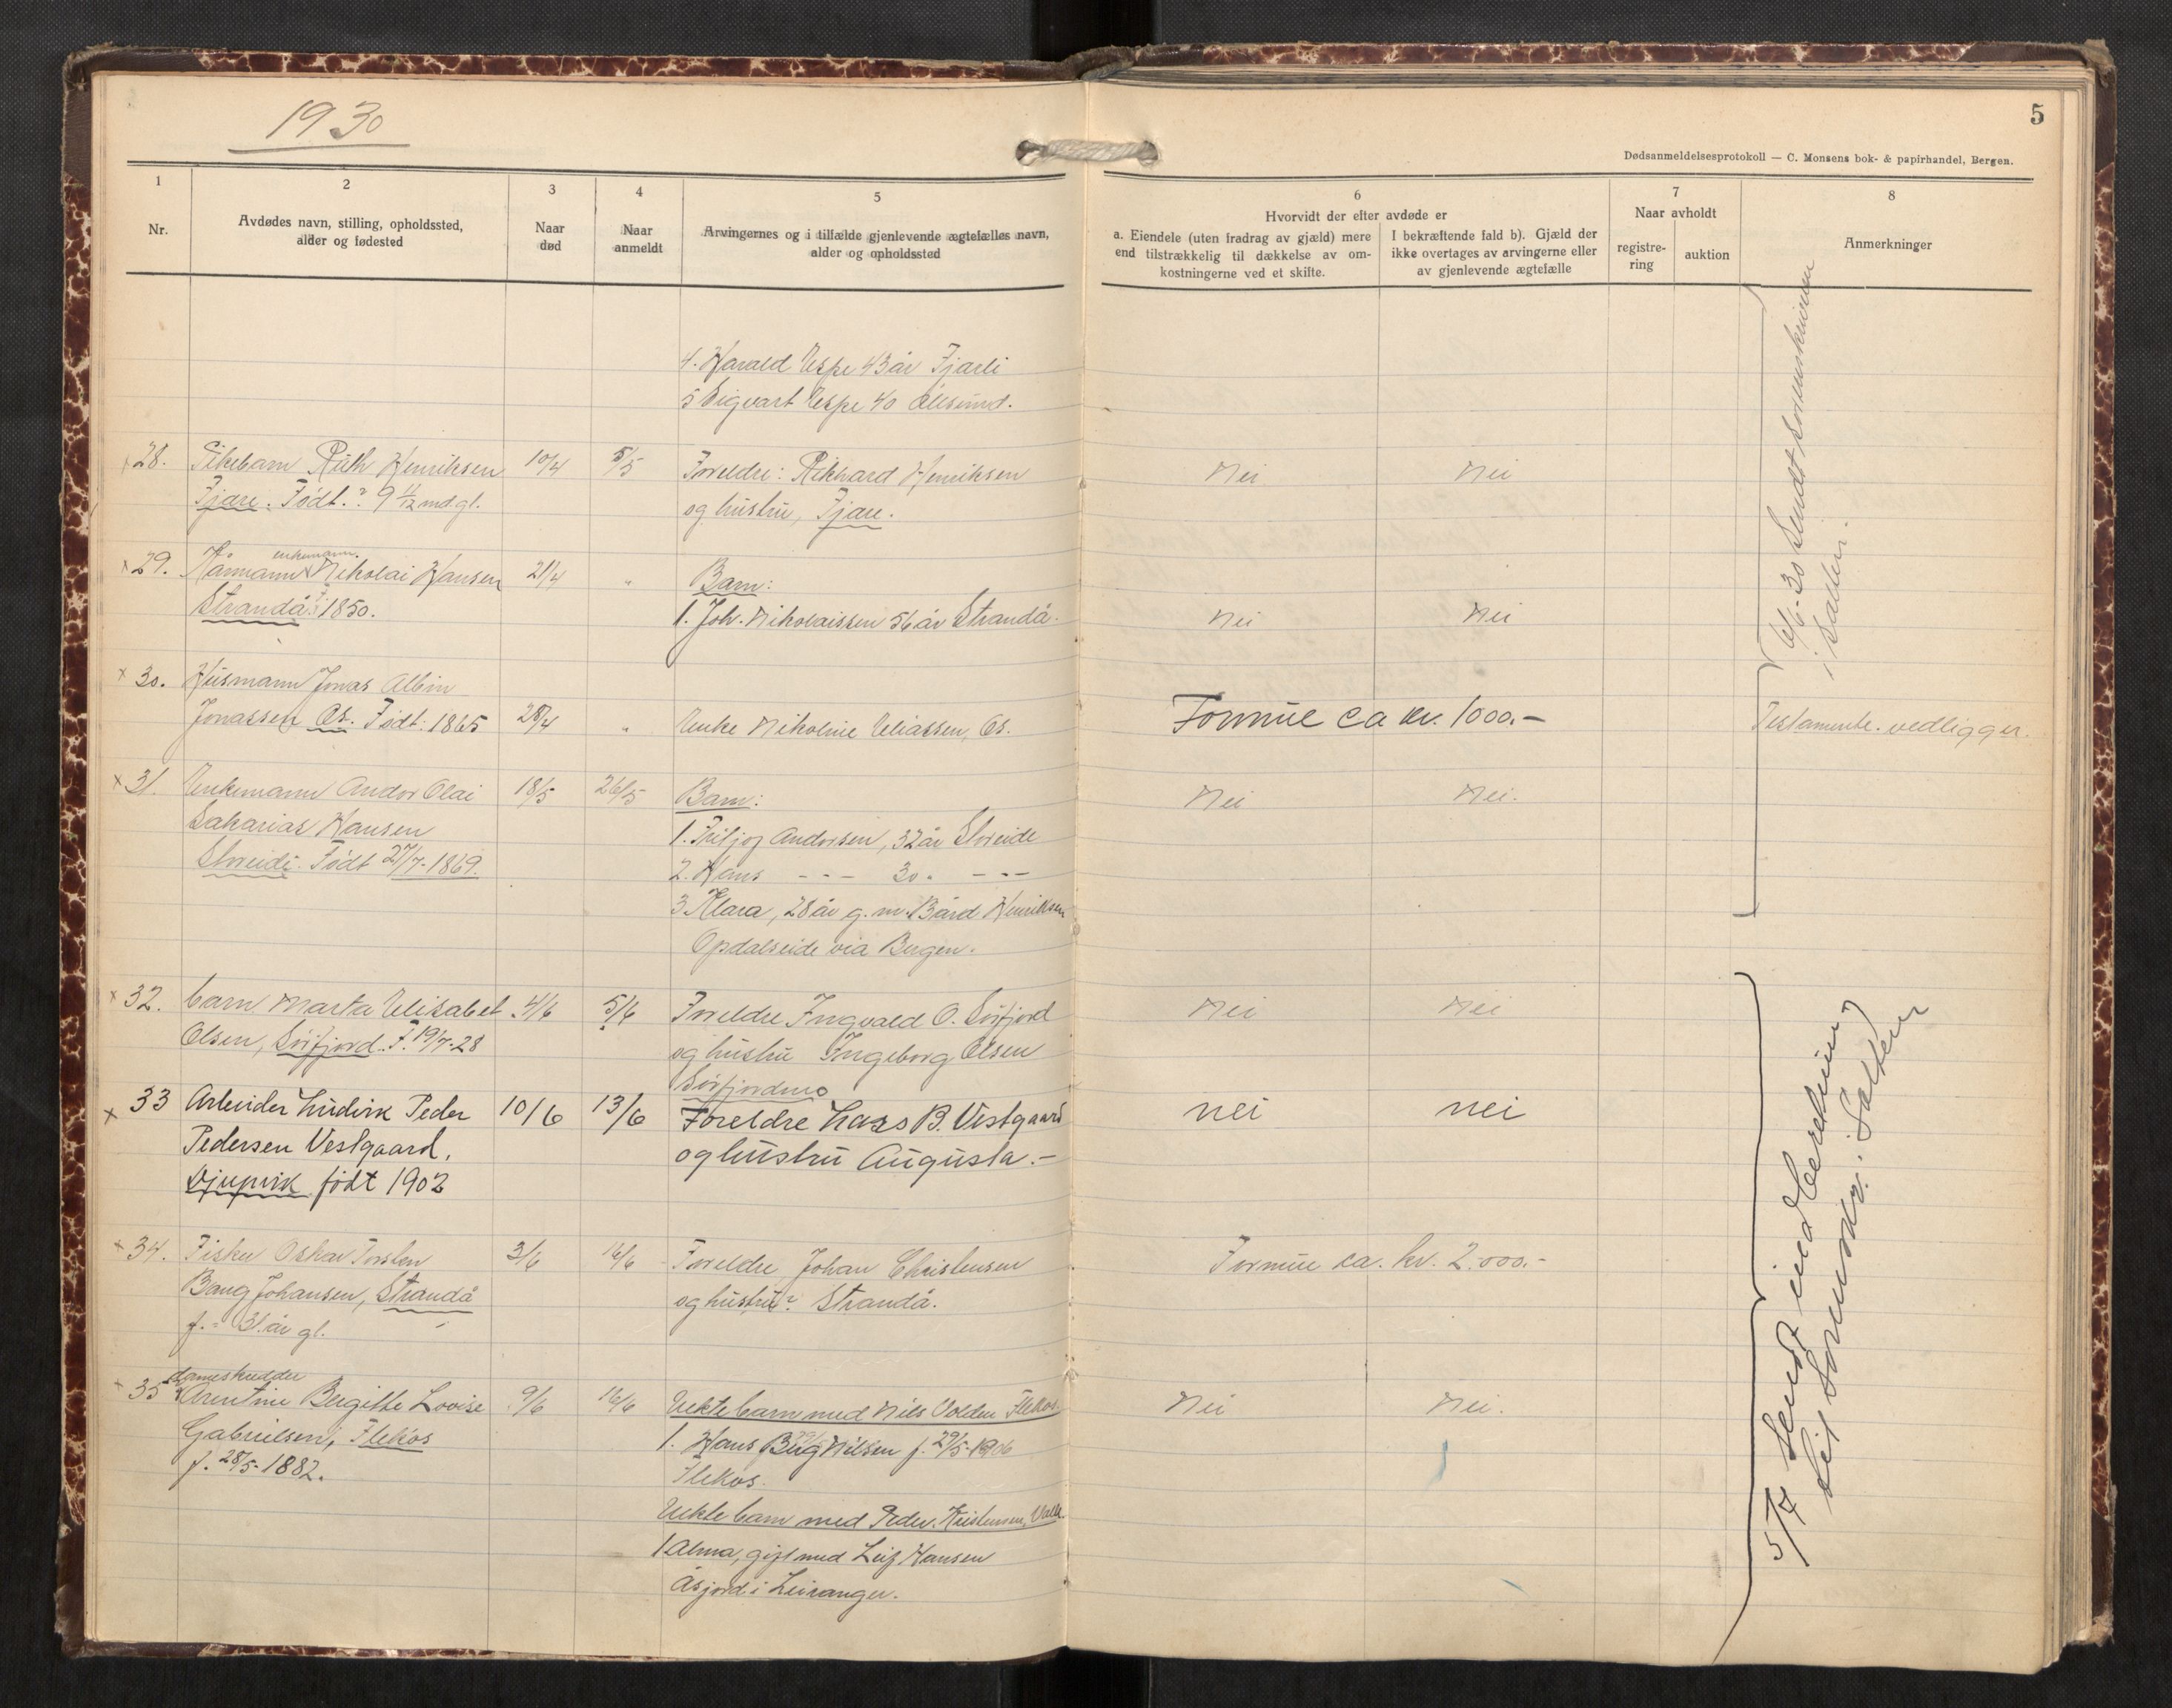 1930
5
Dødsanmeldelsesprotokoll — C. Monsens bok- & papirhandel, Bergen.
1
2
3
4
5
6
7
8
Nr.
Avdødes navn, stilling, opholdssted,
alder og fødested
Naar
død
Naar
anmeldt
Arvingernes og i tilfælde gjenlevende ægtefælles navn,
alder og opholdssted
Hvorvidt der efter avdøde er
a. Eiendele (uten fradrag av gjæld) mere
end tilstrækkelig til dækkelse av om-
kostningerne ved et skifte.
I bekræftende fald b). Gjæld der
ikke overtages av arvingerne eller
av gjenlevende ægtefælle
Naar avholdt
registre-
ring
auktion
Anmerkninger
4. Harald Espe 43 år Fjarli
5 Sigvart Espe 40 Ålesund.
28. Pikebarn Ruth Henriksen 10/4 5/5 Foreldre: Rikhard Henriksen Nei Nei
Fjære. Født? 9 11/12 md. gl. og hustru, Fjære.
enkemann
29. Kårmann Nikolai Hansen 21/4 " Barn:
Strandå: 1850. 1. Joh. Nikolaissen 56 år Strandå. Nei Nei
6/6-30 Sendt sorenskriveren
i Salten.
30. Husmann Jonas Albin
Jonassen Os. Født: 1865 28/4 " Enke Nikoline Eliassen, Os. Formue ca kr. 1000.- Testamente vedligger.
31. Enkemann Andor Olai 18/5 26/5 Barn: Nei Nei.
Sakarias Hansen 1. Fritjof Andorsen, 32 år Storeide
Storeide. Født 27/7-1869. 2. Hans --- 30. ---
3 Klara, 28 år g. m. Bård Henriksen
Opdalseide via Bergen.
32. barn Marta Elisabet 4/6 5/6 Foreldre Ingvald O. Sörfjord Nei Nei
Olsen, Sörfjord. F. 19/7-28 og hustru Ingeborg Olsen
Sörfjordmo
33 Arbeider Ludvik Peder 10/6 13/6 Foreldre Lars B. Vestgaard nei nei
Pedersen Vestgaard. og hustru Augusta.-
Djupvik født 1902
34. Fisker Oskar Torsten 3/6 16/6 Foreldre Johan Christensen Formue ca. kr. 2.000.-
Bang Johansen, Strandå og hustru? Strandå.
f. = 31 år gl.
dameskredder
35 Arentine Bergitte Lovise 9/6 16/6 Uekte barn med Nils Volden Flekos. Nei Nei.
Gabrielsen, Flekos 1. Hans Berg Nilsen f. 29/5-1906
f. 28/5-1882. Flekos.
Uekte barn med Peder Kristensen, Valle.
1 Alma, gift med Leif Hansen
Åsjord i Leiranger.
5/7 Sendt ind beretning
til Sorenskr. i Salten